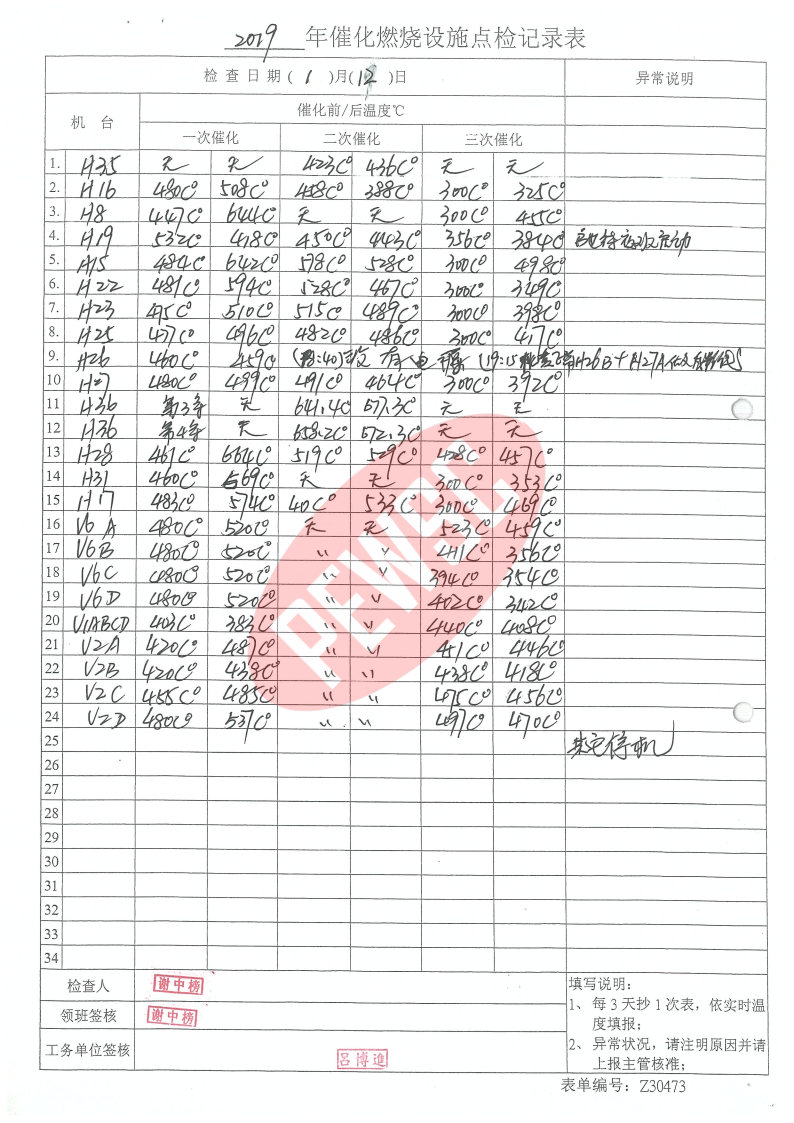 2019 年催化燃烧设施点检记录表
检查日期(1)月(12)日 异常说明
机 台 催化前/后温度℃
一次催化 二次催化 三次催化
1. H35 无 无 423C° 436C° 无 无
2. H16 480C° 508C° 388C° 300C° 325C°
3. H8 447C° 644C° 无 无 300C° 455C°
4. H19 532C° 418C° 450C° 443C° 356C° 384C°
5. A15 484C° 642C° 578C° 528C° 300C° 498C°
6. H22 481C° 594C° 528C° 467C° 300C° 349C°
7. H23 475C° 510C° 515C° 489C° 300C° 398C°
8. H25 477C° 496C° 482C° 486C° 300C° 417C°
9. H26 460C° 459C° H26B+ H27A
10 480C° 499C° 491C° 464C° 300C° 392C°
11 H36 第3号 无 641.4C 577.3C 无 无
12 H36 第4号 无 658.2C 572.3C 无 无
13 H28 461C° 664C° 519C° 529C° 428C° 457C°
14 H31 460C° 569C° 无 无 300C° 353C°
15 H17 483C° 574C° 40C° 533C° 300C° 469C°
16 V6A 480C° 520C° 无 无 523C° 459C°
17 V6B 480C° 520C° 〃 〃 411C° 356C°
18 V6C 480C° 520C° 〃 〃 394C° 354C°
19 V6D 480C° 520C° 〃 〃 402C° 342C°
20 V1ABCD 403C° 383C° 〃 〃 440C° 408C°
21 V2A 420C° 487C° 〃 〃 451C° 446C°
22 V2B 420C° 438C° 〃 〃 438C° 418C°
23 V2C 455C° 485C° 〃 〃 475C° 456C°
24 V2D 480C° 537C° 〃 〃 497C° 470C°
25 停机
26
27
28
29
30
31
32
33
34
PEWSC
检查人 谢中榜
领班签核 谢中榜
工务单位签核 吕博進
填写说明:
1、每3天抄1次表，依实时温
度填报;
2、异常状况，请注明原因并请
上报主管核准;
表单编号：Z30473